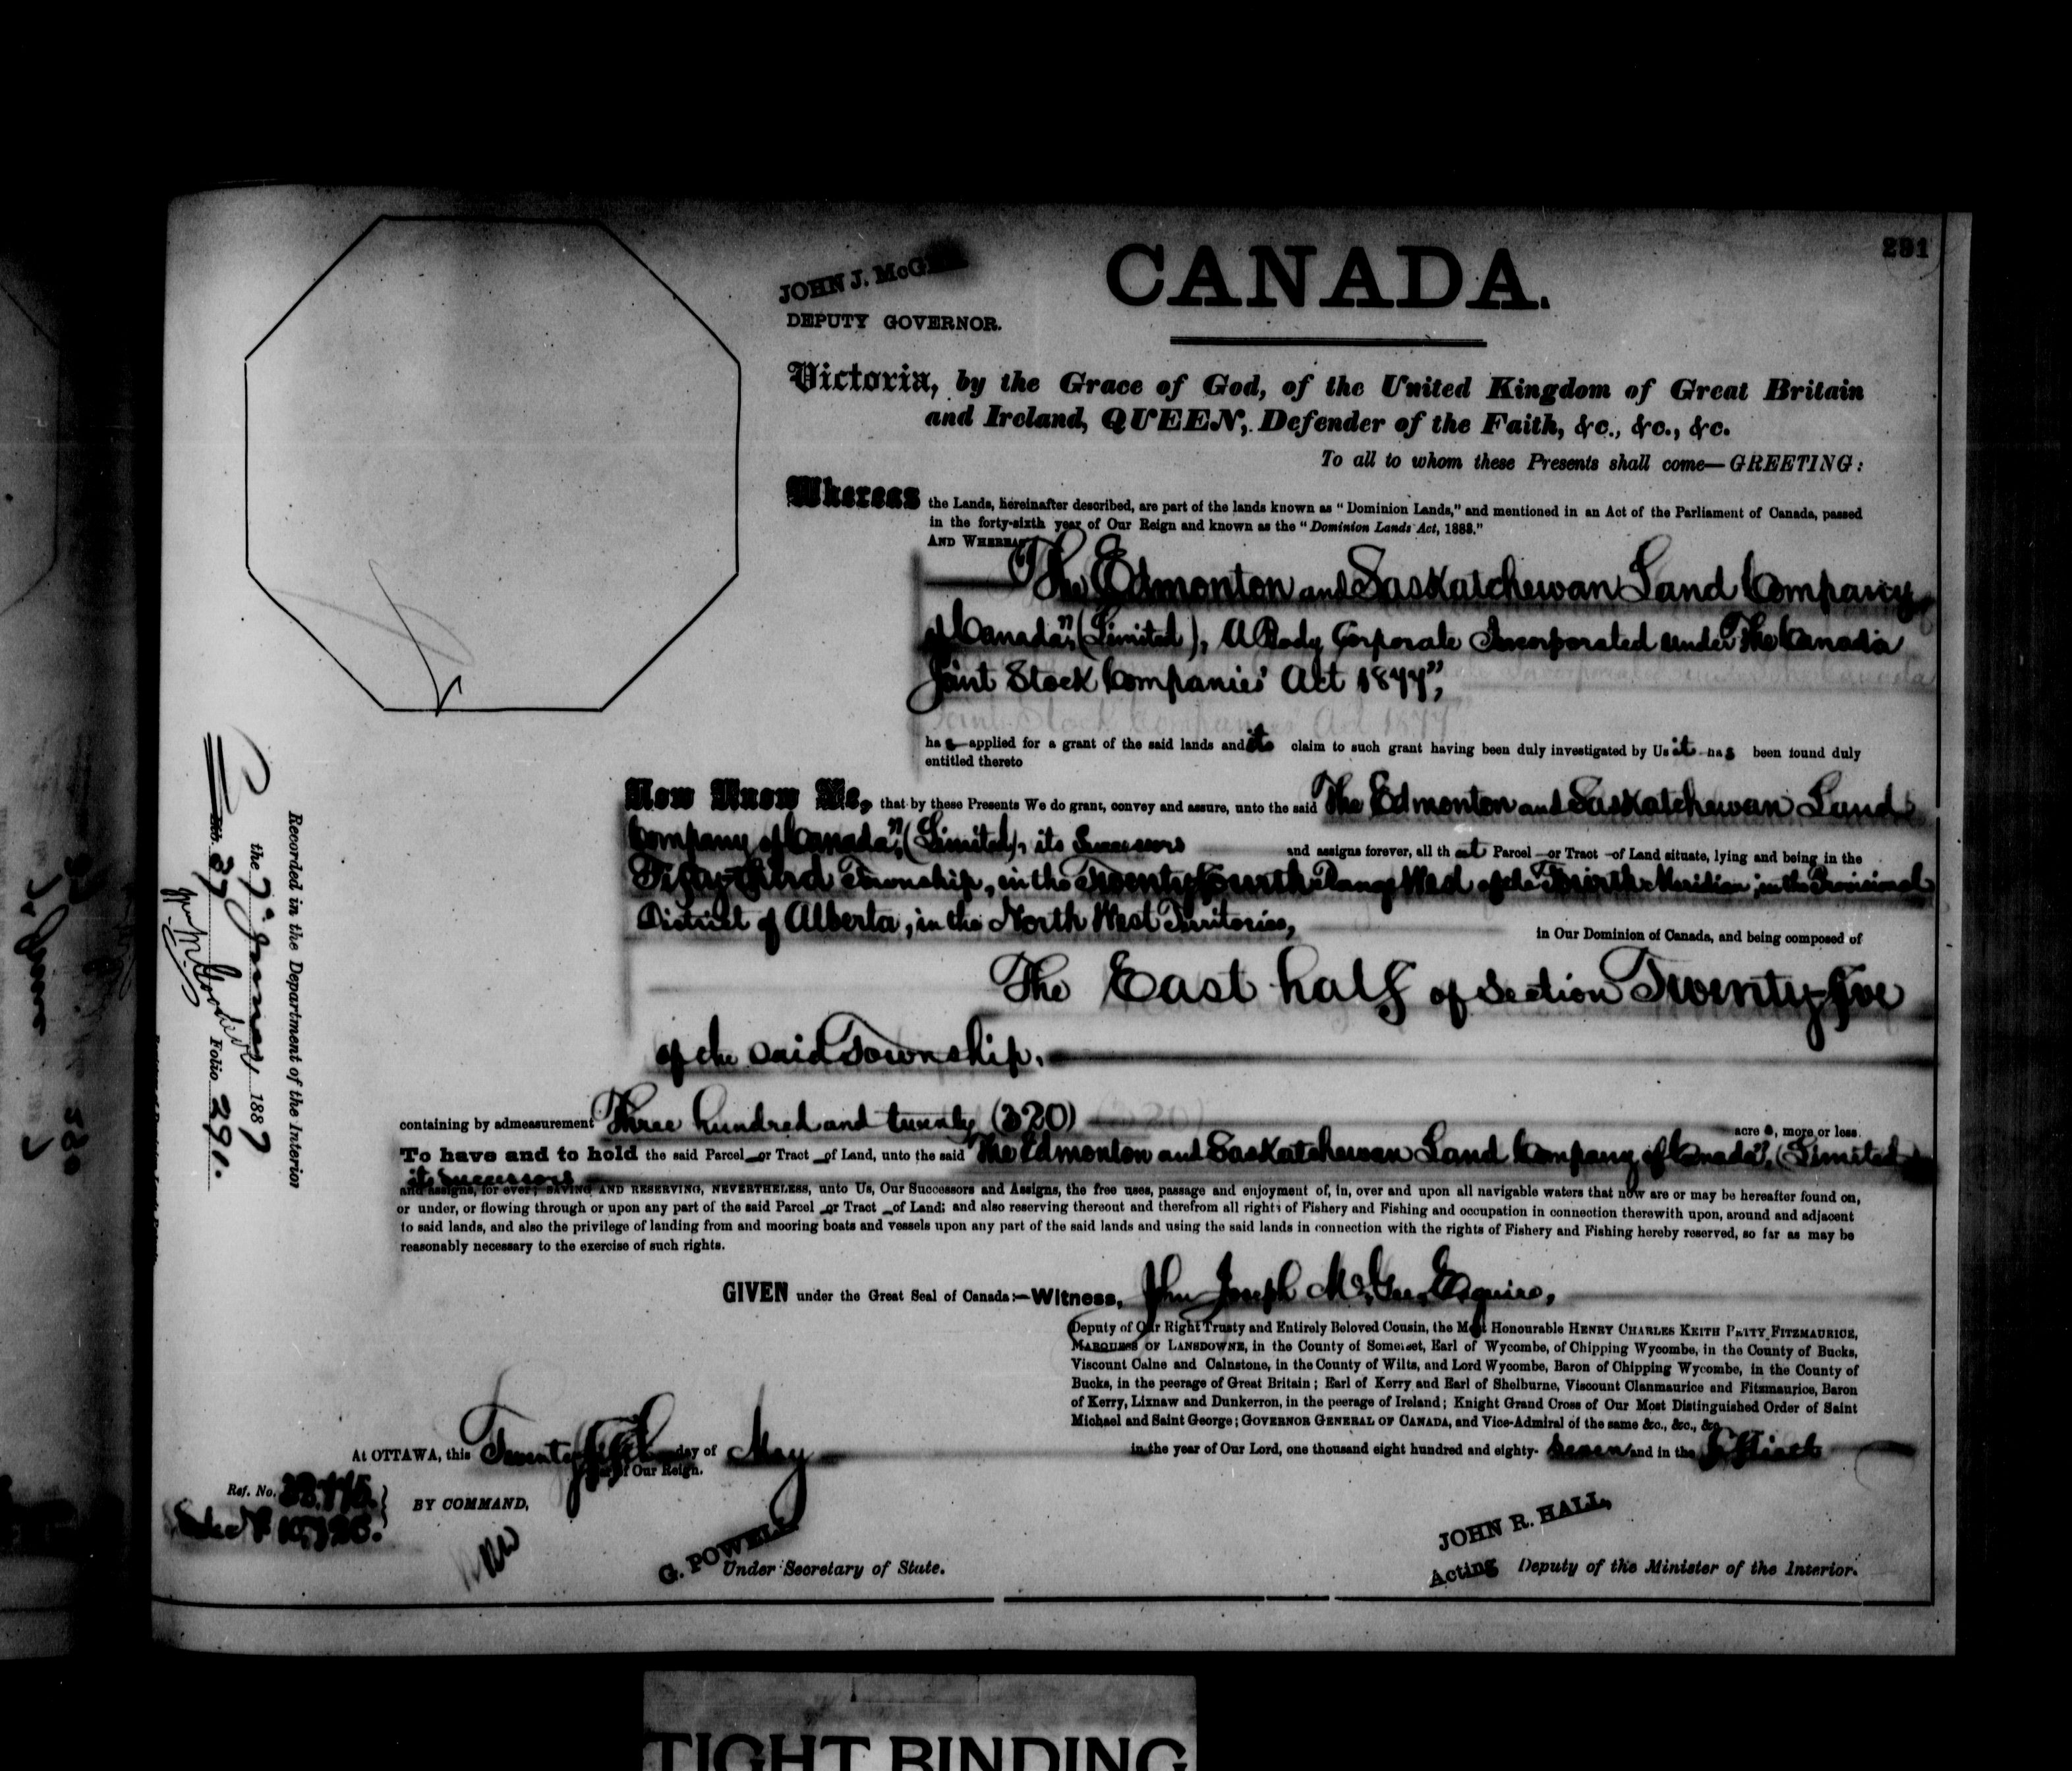 291
JOHN J. McG
DEPUTY GOVERNOR.
CANADA.
Victoria, by the Grace of God, of the United Kingdom of Great Britain
and Ireland, QUEEN, Defender of the Faith, &c., &c., &c.
To all to whom these Presents shall come—GREETING:
Whereas the Lands, hereinafter described, are part of the lands known as "Dominion Lands," and mentioned in an Act of the Parliament of Canada, passed
in the forty-sixth year of Our Reign and known as the "Dominion Lands Act, 1883."
AND WHEREAS
"The Edmonton and Saskatchewan Land Company
of Canada" (Limited), A Body Corporate Incorporated under "The Canada
Joint Stock Companies' Act 1877",
has applied for a grant of the said lands and its claim to such grant having been duly investigated by Us it has been found duly
entitled thereto
Now Know Ye, that by these Presents We do grant, convey and assure, unto the said "The Edmonton and Saskatchewan Land
Company of Canada" (Limited), its Successors and assigns forever, all that Parcel or Tract of Land situate, lying and being in the
Fifty-third Township, in the Twenty-fourth Range West of the Fourth Meridian, in the Provisional
District of Alberta, in the North West Territories, in Our Dominion of Canada, and being composed of
The East half of Section Twenty-five
of the said Township.
containing by admeasurement Three hundred and twenty (320) acres, more or less.
To have and to hold the said Parcel or Tract of Land, unto the said "The Edmonton and Saskatchewan Land Company of Canada", (Limited
its Successors
and assigns, for ever; SAVING AND RESERVING, NEVERTHELESS, unto Us, Our Successors and Assigns, the free uses, passage and enjoyment of, in, over and upon all navigable waters that now are or may be hereafter found on,
or under, or flowing through or upon any part of the said Parcel or Tract of Land; and also reserving thereout and therefrom all rights of Fishery and Fishing and occupation in connection therewith upon, around and adjacent
to said lands, and also the privilege of landing from and mooring boats and vessels upon any part of the said lands and using the said lands in connection with the rights of Fishery and Fishing hereby reserved, so far as may be
reasonably necessary to the exercise of such rights.
GIVEN under the Great Seal of Canada:—Witness, John Joseph McGee, Esquire,
Deputy of Our Right Trusty and Entirely Beloved Cousin, the Most Honourable HENRY CHARLES KEITH PETTY FITZMAURICE,
MARQUESS OF LANSDOWNE, in the County of Somerset, Earl of Wycombe, of Chipping Wycombe, in the County of Bucks,
Viscount Calne and Calnstone, in the County of Wilts, and Lord Wycombe, Baron of Chipping Wycombe, in the County of
Bucks, in the peerage of Great Britain; Earl of Kerry and Earl of Shelburne, Viscount Clanmaurice and Fitzmaurice, Baron
of Kerry, Lixnaw and Dunkerron, in the peerage of Ireland; Knight Grand Cross of Our Most Distinguished Order of Saint
Michael and Saint George; GOVERNOR GENERAL OF CANADA, and Vice-Admiral of the same &c., &c., &c.
At OTTAWA, this Twenty fifth day of May in the year of Our Lord, one thousand eight hundred and eighty-seven and in the fiftieth
year of Our Reign.
Ref. No.
BY COMMAND,
G. POWELL
Under Secretary of State.
JOHN R. HALL,
Acting Deputy of the Minister of the Interior.
Recorded in the Department of the Interior
the 7th 1887
Lib. 37 Folio 291.
TIGHT BINDING